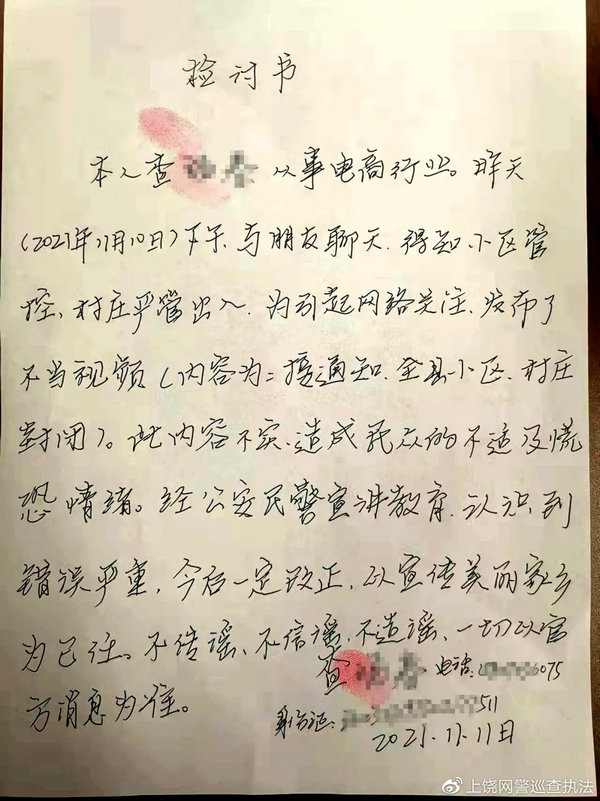 检讨书
本人查 从事电商行业。昨天
(2021年11月10日)下午,与朋友聊天,得知小区管
控,村庄严管出入,为引起网络关注,发布了
不当视频(内容为:接通知,全县小区,村庄
封闭)。此内容不实,造成民众的不适及慌
恐情绪。经公安民警宣讲教育,认识到
错误严重,今后一定改正,以宣传美丽家乡
为己任。不传谣、不信谣、不造谣,一切以官
方消息为准。
查 电话: 6075
身份证: 511
2021.11.11日
上饶网警巡查执法